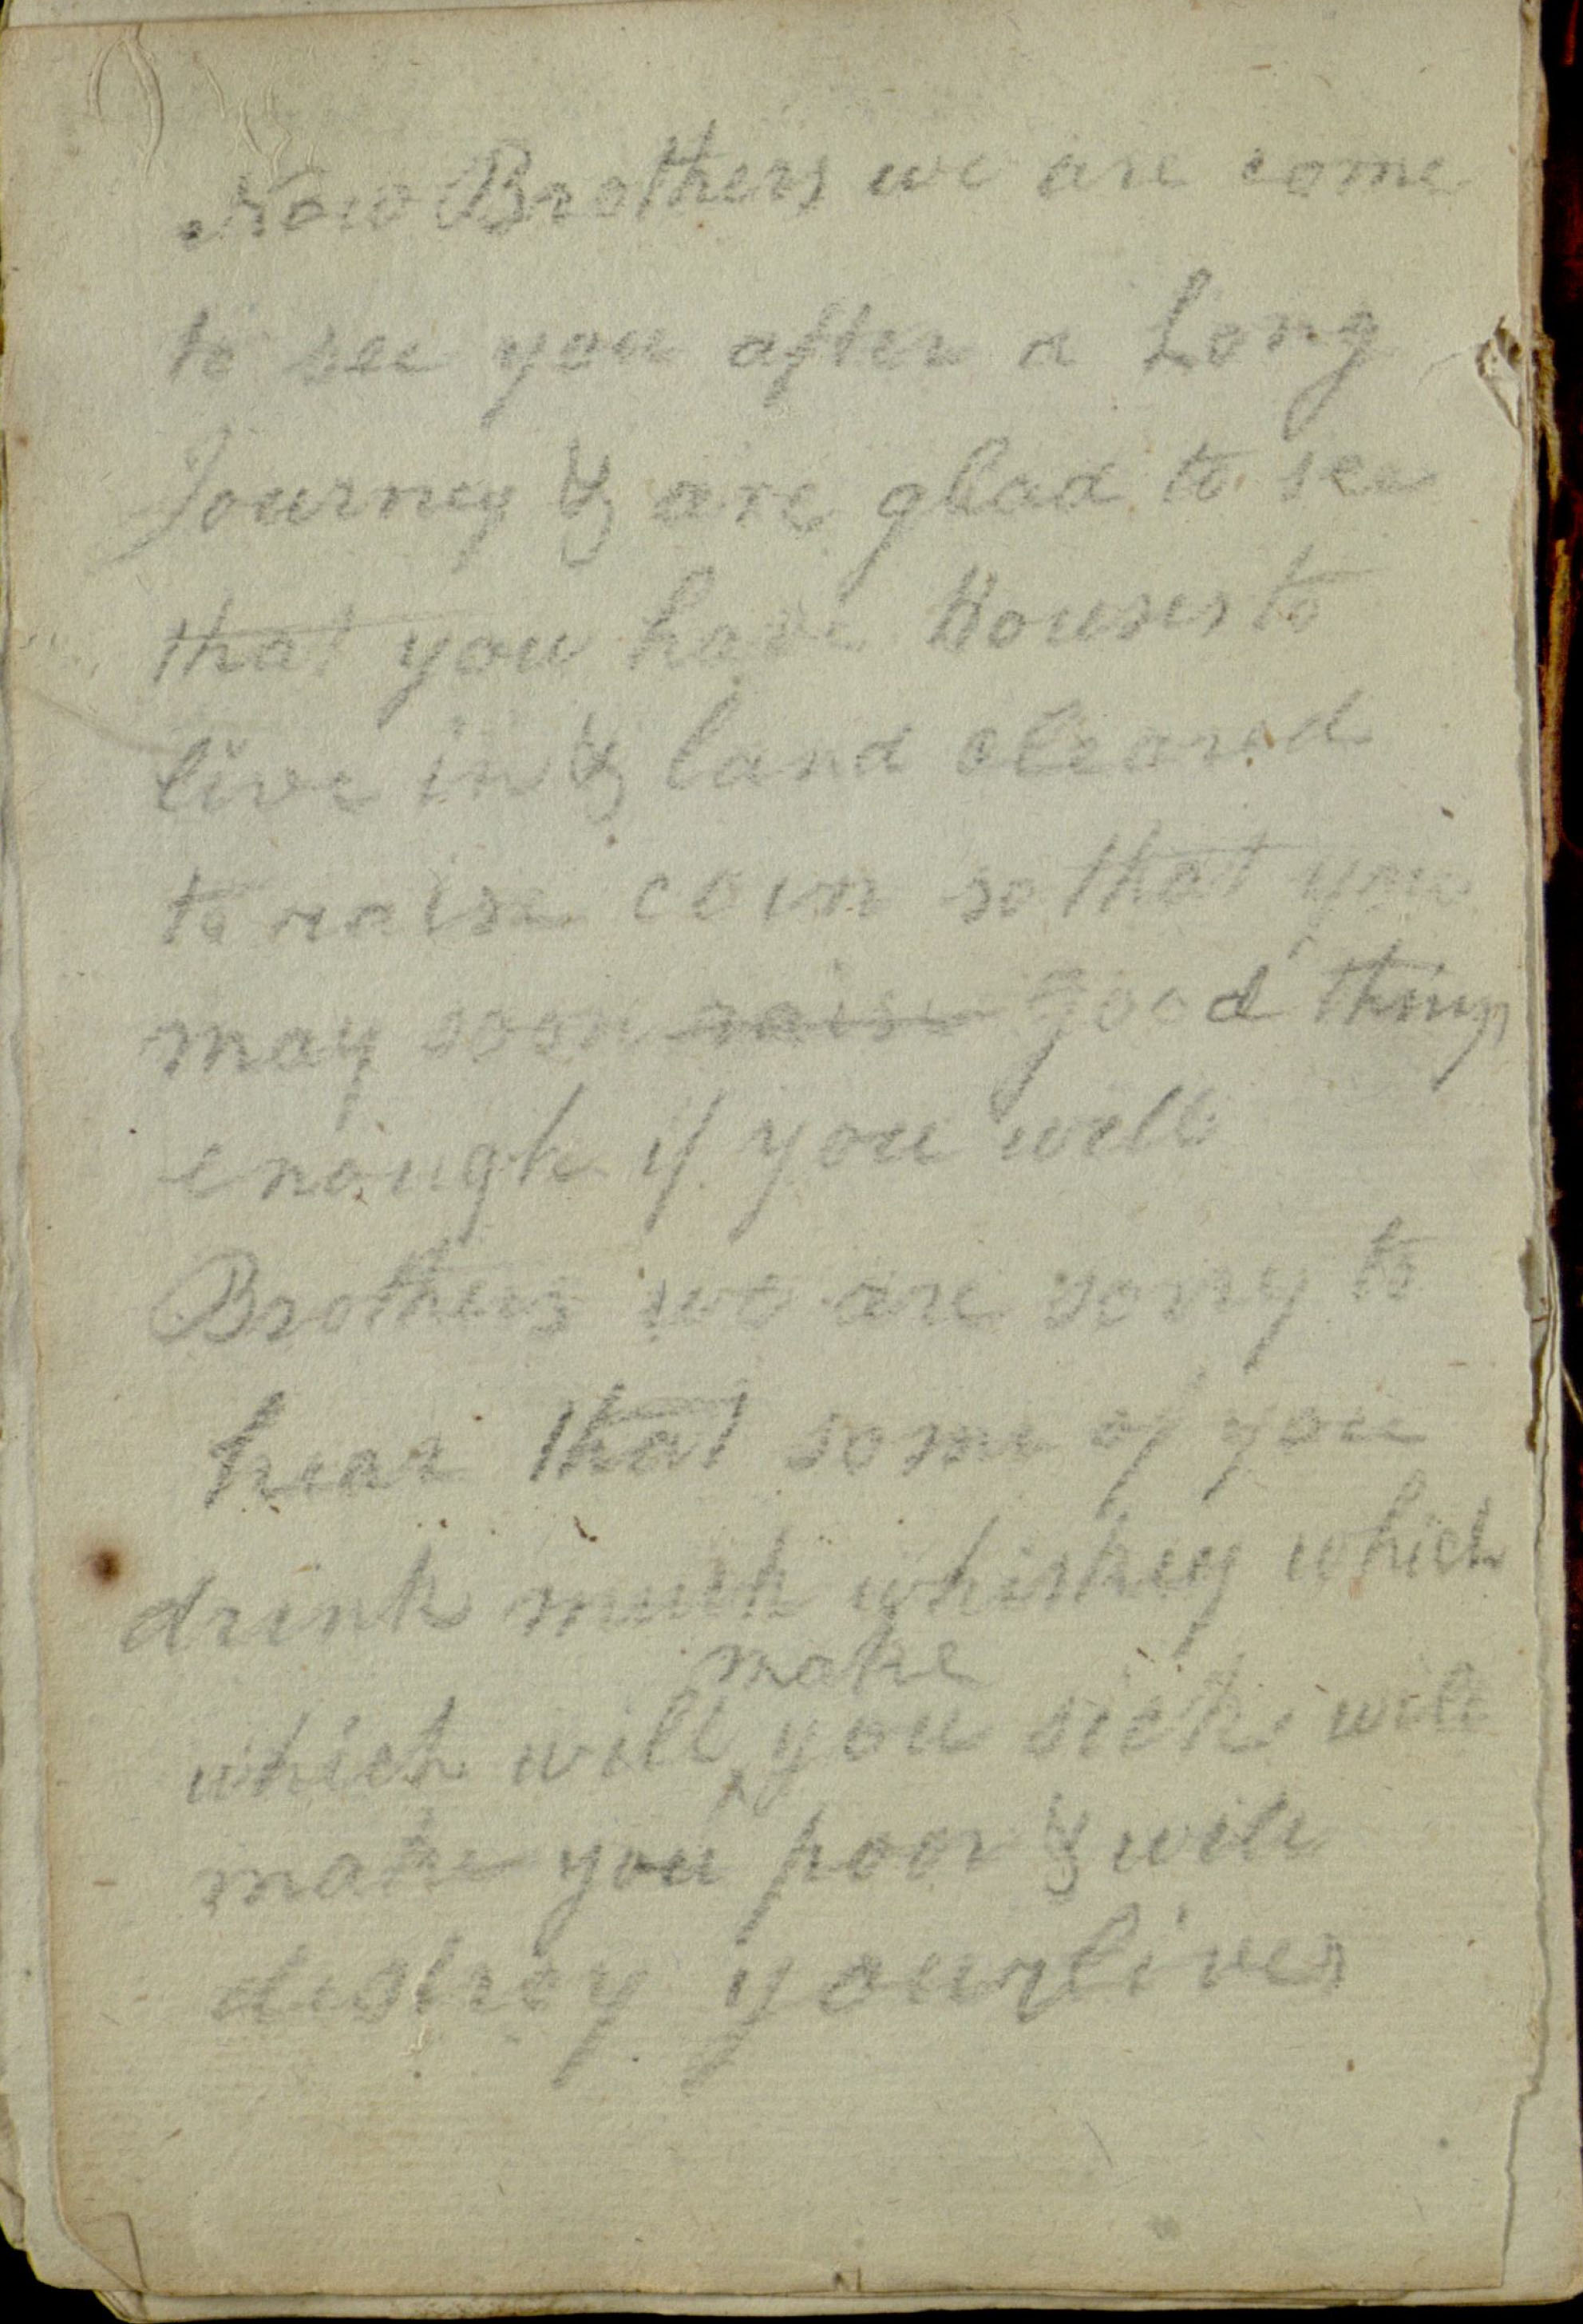 Now Brothers we are come
to see you after a Long
Journey & are glad to see
that you have Houses to
live in & land cleared
to raise corn so that you
may soon raise good things
enough if you will
Brothers we are sorry to
hear that some of you
drink much whiskey which
make
which will you sick will
make you poor & will
destroy your lives